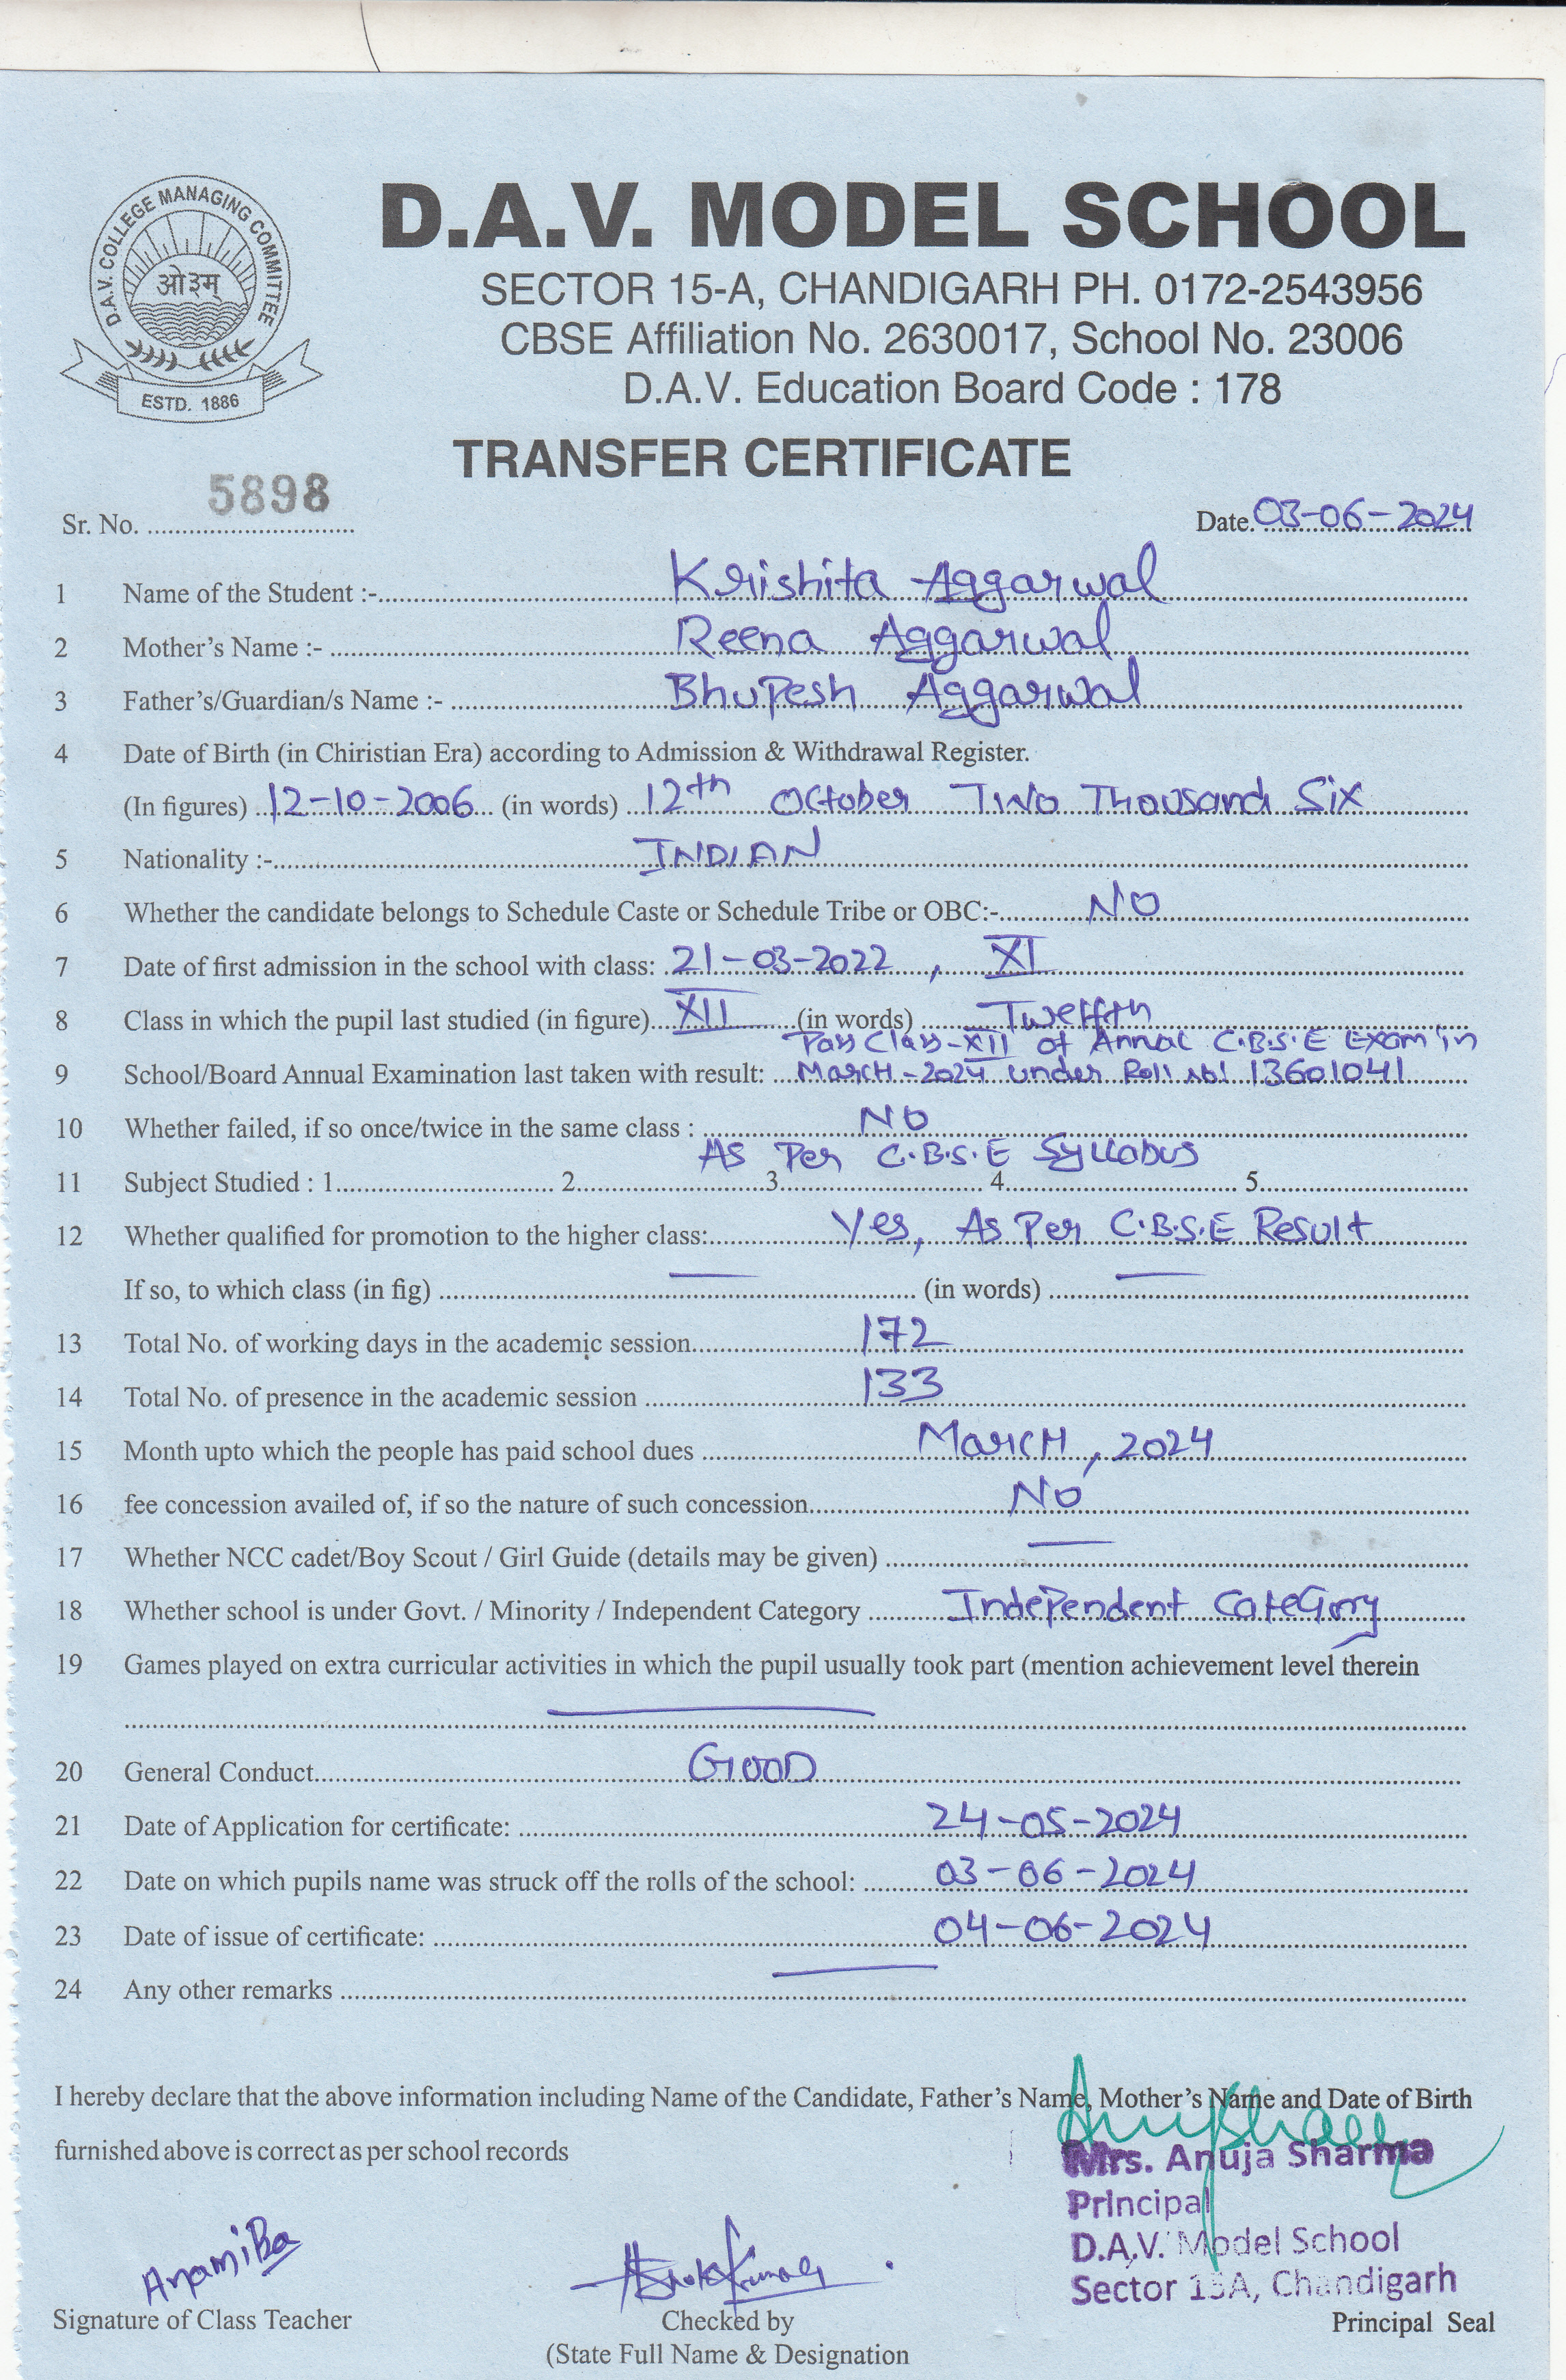 D.A.V. COLLEGE MANAGING COMMITTEE
ओ३म्
ESTD. 1886
D.A.V. MODEL SCHOOL
SECTOR 15-A, CHANDIGARH PH. 0172-2543956
CBSE Affiliation No. 2630017, School No. 23006
D.A.V. Education Board Code : 178
TRANSFER CERTIFICATE
Sr. No. 5898 Date. 03-06-2024
1 Name of the Student :- Krishita Aggarwal
2 Mother's Name :- Reena Aggarwal
3 Father's/Guardian/s Name :- Bhupesh Aggarwal
4 Date of Birth (in Chiristian Era) according to Admission & Withdrawal Register.
(In figures) 12-10-2006 (in words) 12th October Two Thousand Six
5 Nationality :- INDIAN
6 Whether the candidate belongs to Schedule Caste or Schedule Tribe or OBC:- NO
7 Date of first admission in the school with class: 21-03-2022, XI
8 Class in which the pupil last studied (in figure) XII (in words) Twelfth
Pass Class-XII of Annal C.B.S.E Exam in
9 School/Board Annual Examination last taken with result: March-2024 under Roll no! 13601041
10 Whether failed, if so once/twice in the same class : NO
As Per C.B.S.E Syllabus
11 Subject Studied : 1 2 3 4 5
12 Whether qualified for promotion to the higher class: Yes, As Per C.B.S.E Result
If so, to which class (in fig) — (in words) —
13 Total No. of working days in the academic session 172
14 Total No. of presence in the academic session 133
15 Month upto which the people has paid school dues March, 2024
16 fee concession availed of, if so the nature of such concession No
17 Whether NCC cadet/Boy Scout / Girl Guide (details may be given) —
18 Whether school is under Govt. / Minority / Independent Category Independent Category
19 Games played on extra curricular activities in which the pupil usually took part (mention achievement level therein
—
20 General Conduct GOOD
21 Date of Application for certificate: 24-05-2024
22 Date on which pupils name was struck off the rolls of the school: 03-06-2024
23 Date of issue of certificate: 04-06-2024
24 Any other remarks —
I hereby declare that the above information including Name of the Candidate, Father's Name, Mother's Name and Date of Birth
furnished above is correct as per school records
Mrs. Anuja Sharma
Principal
D.A.V. Model School
Sector 15A, Chandigarh
Anamika
Ashok Kumar
Signature of Class Teacher Checked by Principal Seal
(State Full Name & Designation